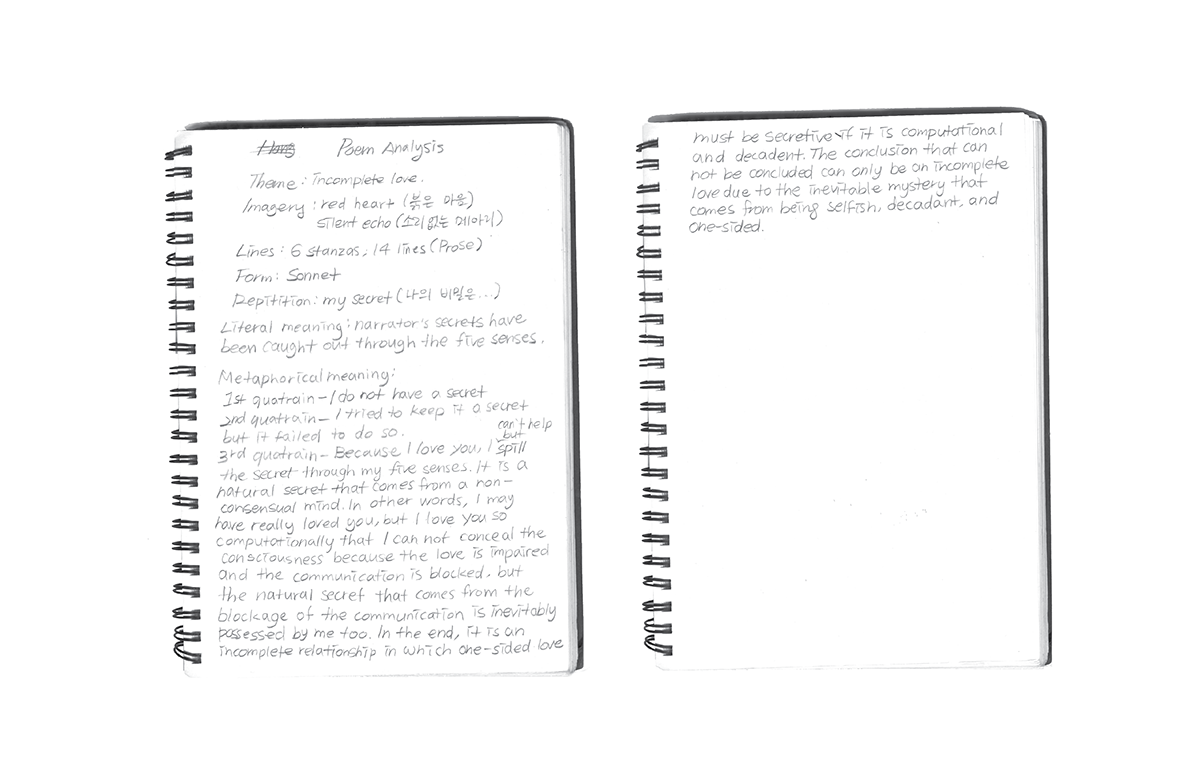 Poem Analysis
Theme: incomplete love.
Imagery: red heart (붉은 마음)
silent echo (소리없는 메아리)
Lines: 6 stanzas, 14 lines (Prose)
Form: Sonnet
Repitition: my secret (나의 비밀은...)
Literal meaning: narrator's secrets have
been caught out through the five senses.
Metaphorical meaning:
1st quatrain - I do not have a secret
2nd quatrain - I tried to keep it a secret
but it failed to do so.
3rd quatrain - Because I love you, I can't help but spill
the secret through my five senses. It is a
natural secret that comes from a non-
consensual mind. In other words, I may
have really loved you, but I love you so
computationally that I can not conceal the
consciousness because the love is impaired
and the communication is blocked. but
the natural secret that comes from the
blockage of the communication is inevitably
possessed by me too. In the end, it is an
incomplete relationship in which one-sided love
must be secretive if it is computational
and decadent. The conclusion that can
not be concluded can only be an incomplete
love due to the inevitable mystery that
comes from being selfish, decadant, and
one-sided.